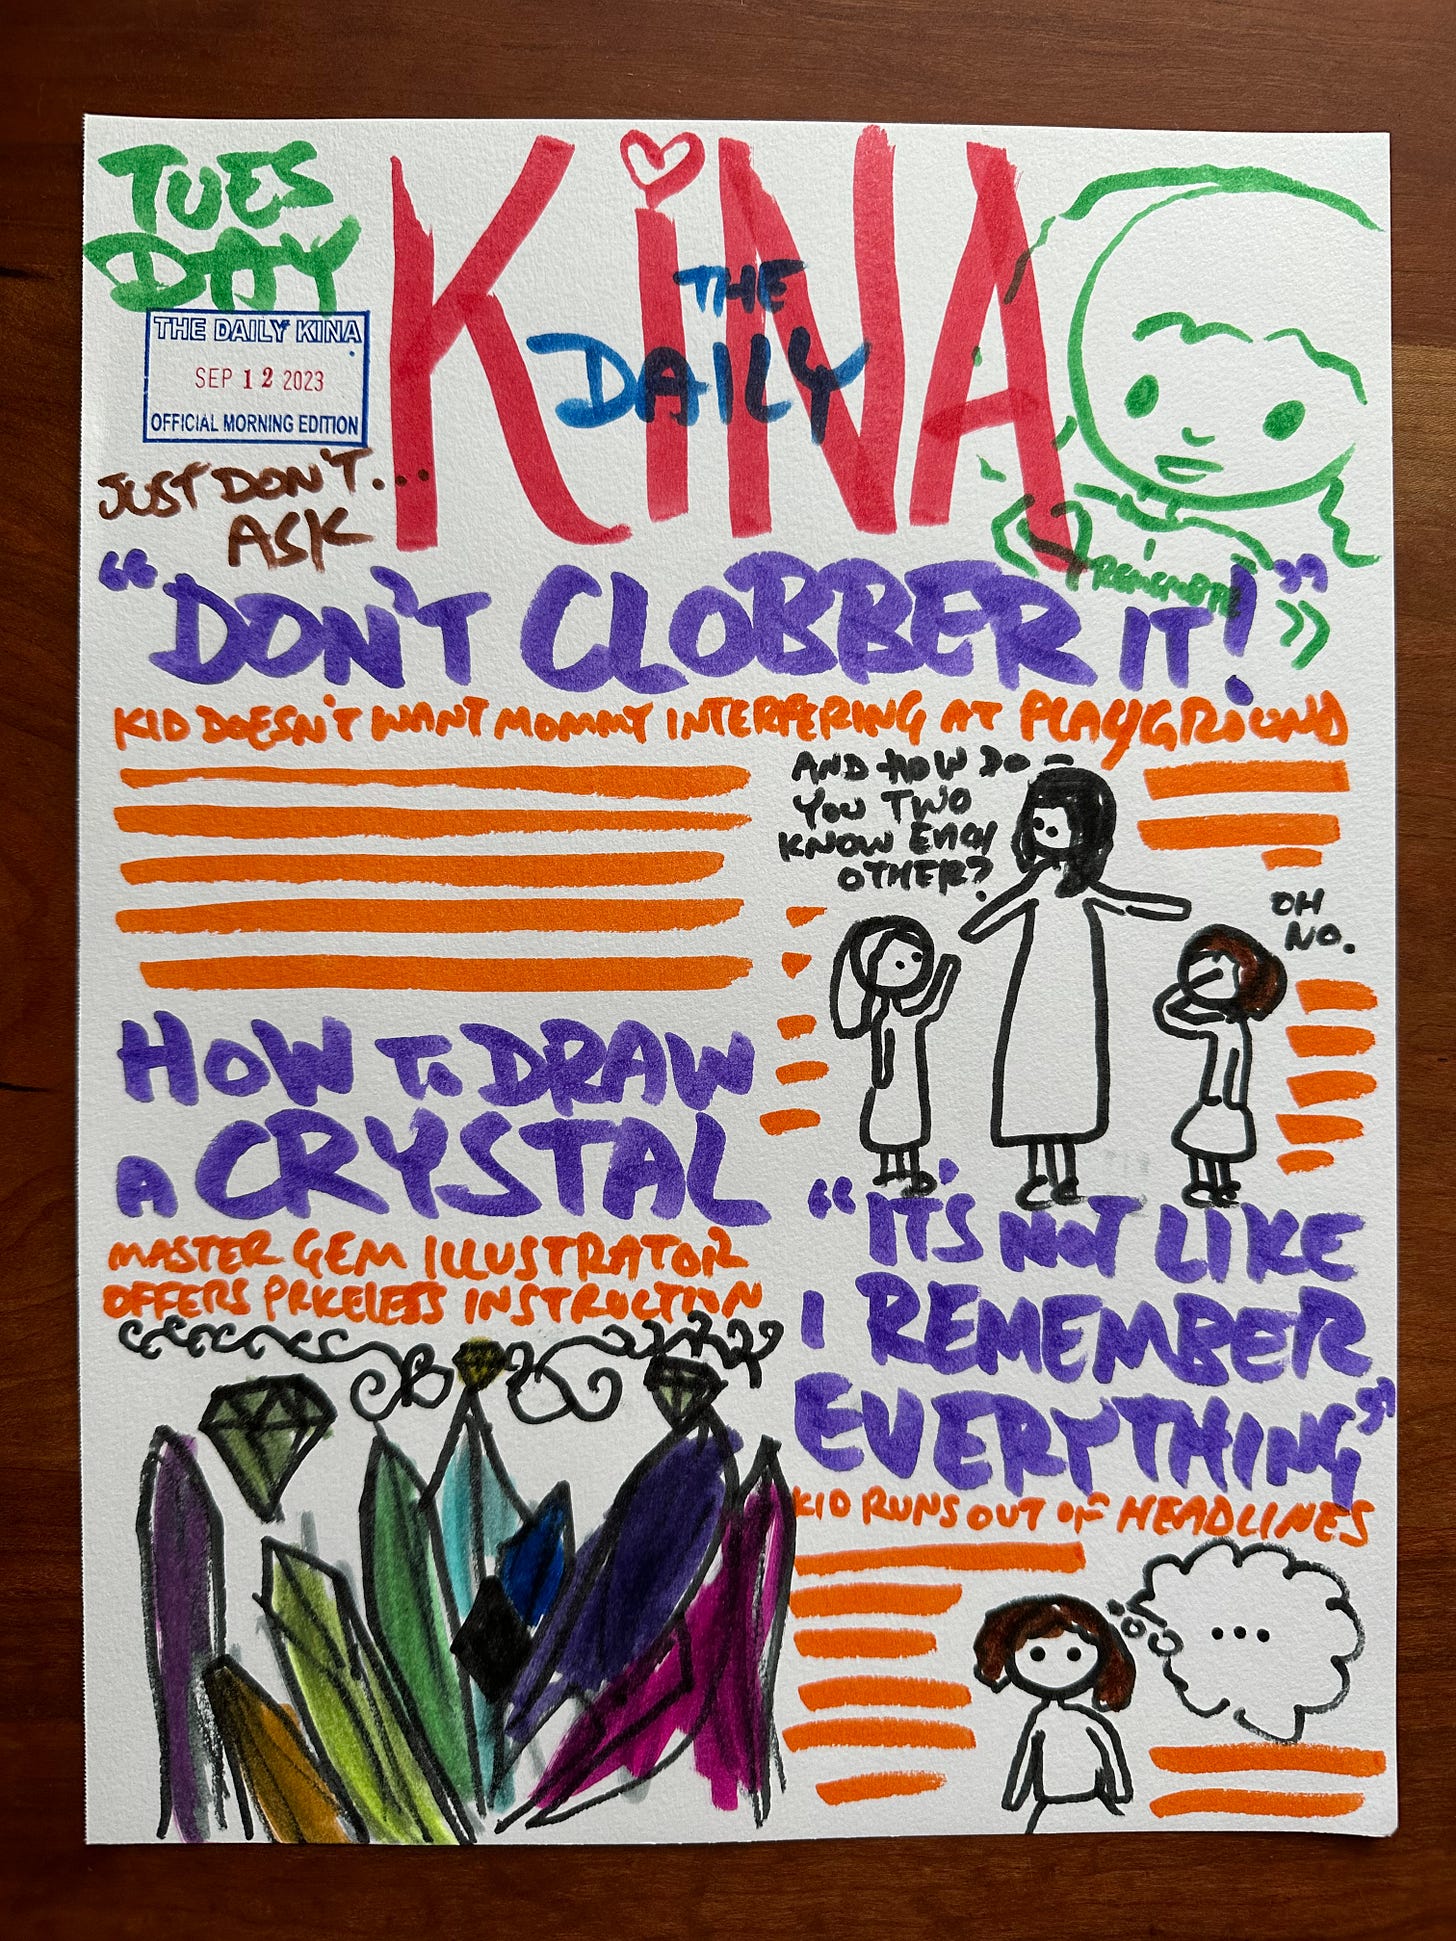 TUES
DAY
THE DAILY KINA
SEP 12 2023
OFFICIAL MORNING EDITION
JUST DON'T...
ASK
KiNA
THE
DAILY
"DON'T CLOBBER IT!"
KID DOESN'T WANT MOMMY INTERFERING AT PLAYGROUND
AND HOW DO
YOU TWO
KNOW EACH
OTHER?
OH
NO.
HOW To DRAW
A CRYSTAL
MASTER GEM ILLUSTRATOR
OFFERS PRICELESS INSTRUCTION
"IT'S NOT LIKE
I REMEMBER
EVERYTHING"
KID RUNS OUT OF HEADLINES
...